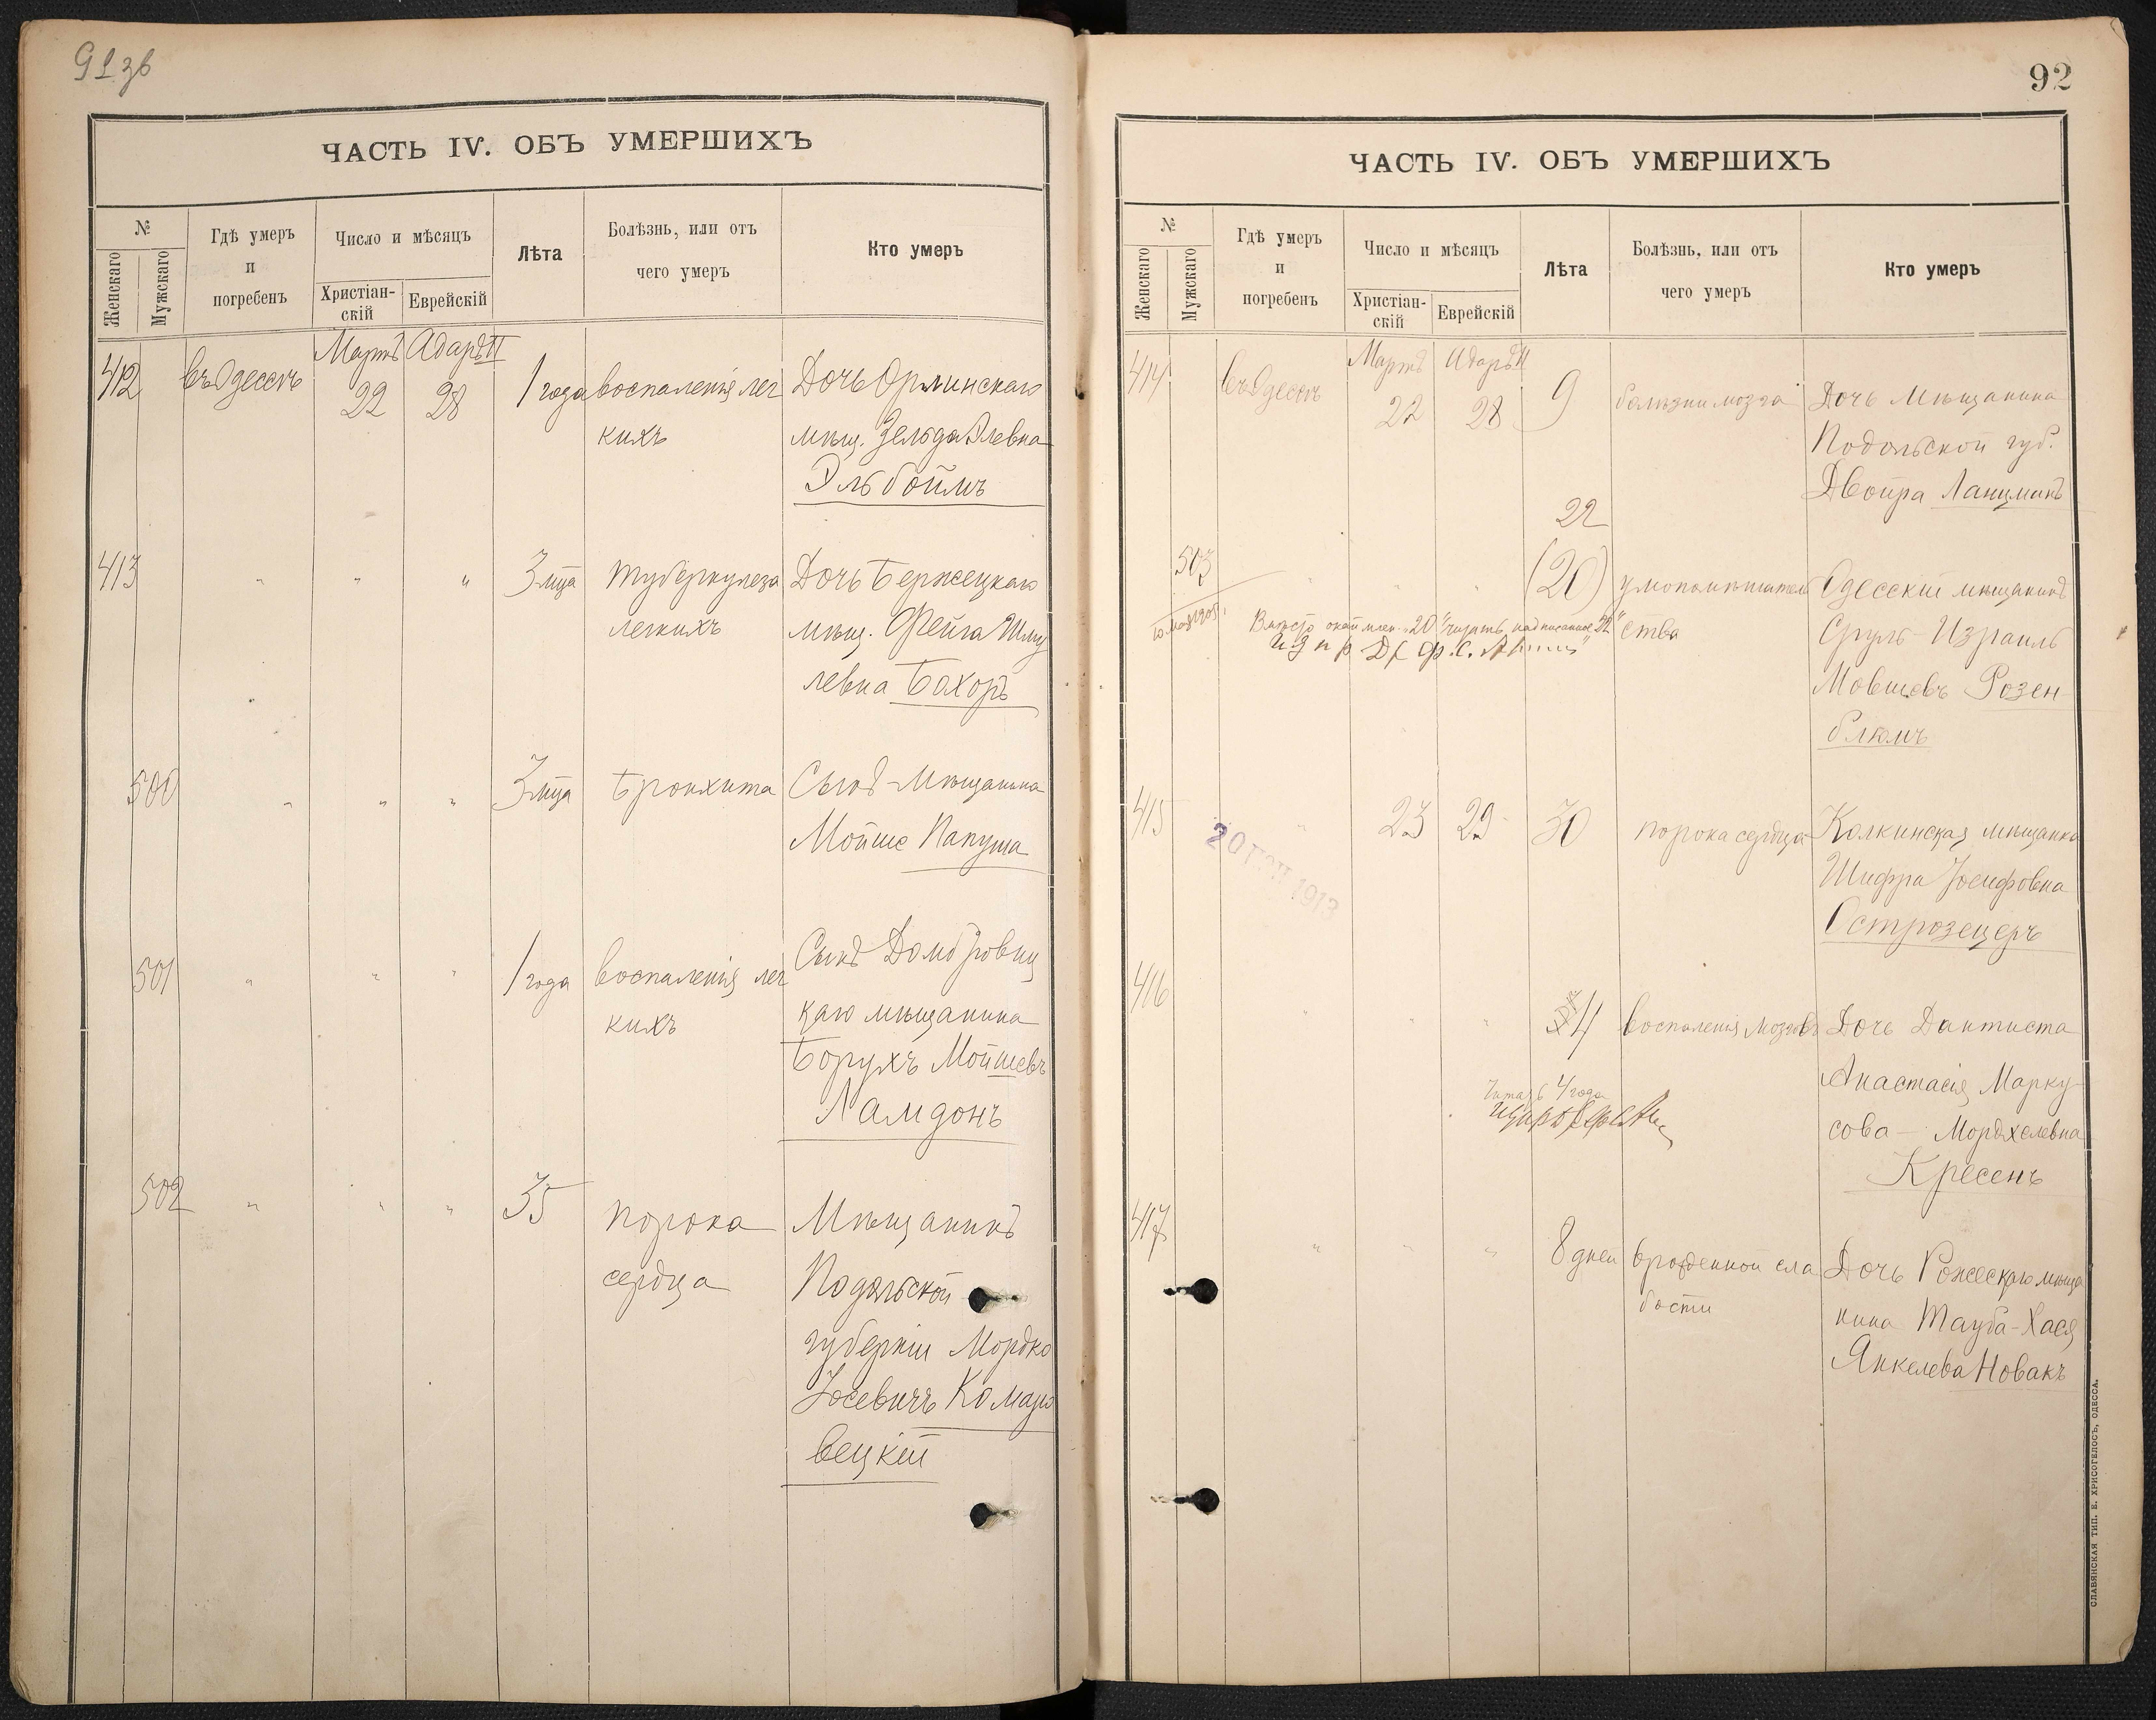 91 зв
ЧАСТЬ IV. ОБЪ УМЕРШИХЪ
№
Женскаго
Мужскаго
Гдѣ умеръ
и
погребенъ
Число и мѣсяцъ
Христіан-
скій
Еврейскій
Лѣта
Болѣзнь, или отъ
чего умеръ
Кто умеръ
Мартъ Адаръ II
412 въ Одессѣ 22 28 1 года воспаленія лег Дочь Орлинскаго
кихъ мѣщ. Зельда Элевна
Эльбоймъ
413 " " " 3 мца туберкулеза Дочь Бержецкаго
легкихъ мѣщ. Фейга Шму
левна Бахоръ
500 " " " 3 мца Бронхита Сынъ Мѣщанина
Мойше Папуша
501 " " " 1 года воспаленія лег Сынъ Домбровиц
кихъ каго мѣщанина
Борухъ Мойшевъ
Ламдонъ
502 " " " 35 порока Мѣщанинъ
сердца Подольской
губерніи Мордко
Іосевичъ Комаро
вецкій
92
ЧАСТЬ IV. ОБЪ УМЕРШИХЪ
№
Женскаго
Мужскаго
Гдѣ умеръ
и
погребенъ
Число и мѣсяцъ
Христіан-
скій
Еврейскій
Лѣта
Болѣзнь, или отъ
чего умеръ
Кто умеръ
Мартъ Адаръ II
414 въ Одессѣ 22 28 9 болѣзни мозга Дочь Мѣщанина
Подольской губ.
Двойра Ланцманъ
22
503 " " " (20) умопомѣшатель Одесскій мѣщанинъ
Вмѣсто "20" читать надписанное "22"
ства Сруль-Израиль
Мовшевъ Розен-
блюмъ
415 " 23 29 30 порока сердца Колкинская мѣщанка
20 1913
Шифра Іосифовна
Острозецеръ
416 " " " 4 воспаленія мозговъ Дочь Дантиста
Анастасія Марку-
Читать 4 года
сова - Мордхелевна
Кресенъ
417 " " " 8 дней врожденной сла Дочь мѣща
бости нина Тауба-Хася
Янкелева Новакъ
СЛАВЯНСКАЯ ТИП. Е. ХРИСОГЕЛОСЪ, ОДЕССА.